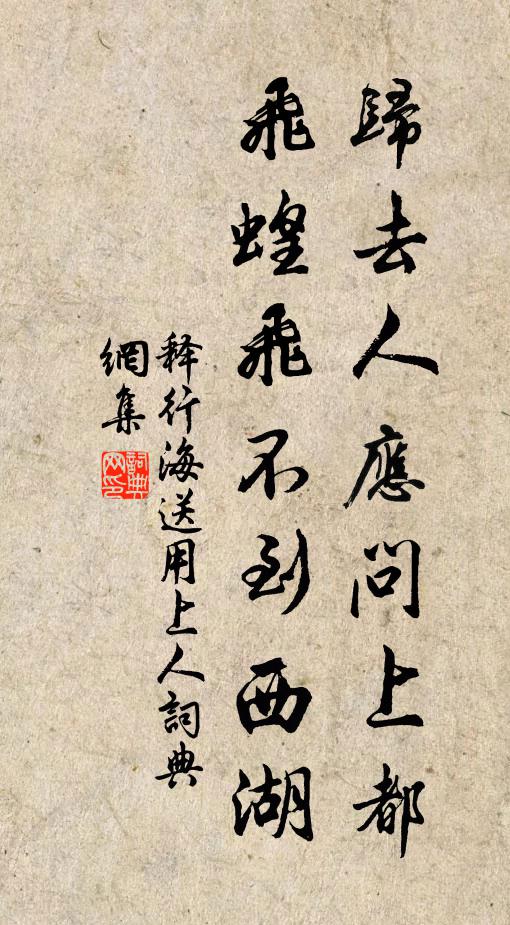 歸去人應問上都
飛蝗飛不到西湖
釋行海送用上人詞典
網集
詞典
网印